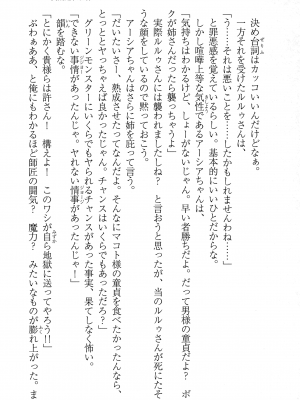 決め台詞はカッコいいんだけどなぁ。
一方それを受けたルルゥさんは、
「う……それは悪いことを……したかもしれませんわね……」
と罪悪感を覚えているらしい。基本的にいいひとだからな。
しかし喧嘩上等な気性であるアーシアちゃんは、
「気持ちはわかるけど、しょーがないじゃん。早い者勝ちだよ。だって男様の童貞だよ？　ボ
クが姉さんだったら襲っちゃうよ」
実際ルルゥさんには襲われましたしね？　と言おうと思ったが、当のルルゥさんが死にそ
うな顔をしているので黙っておこう。
アーシアちゃんはさらに姉を庇って言う。
「だいたいさー、熟成させたってなんだよ。そんなにマコト様の童貞を食べたかったんなら、
とっととヤっちゃえば良かったじゃん。チャンスはいくらでもあっただろ？」
グリーンモンスターにいくらでもヤられるチャンスがあった事実、果てしなく怖い。
「できない事情があったんじゃ。ヤれない情事があったんじゃ！」
韻を踏むな。
「とにかく貴様らは許さん！　構えよ！　このワシが自ら地獄に送ってやろう！！」
ぶわぁああ、と俺にもわかるほど師匠の闘気？　魔力？　みたいなものが膨れ上がった。ま